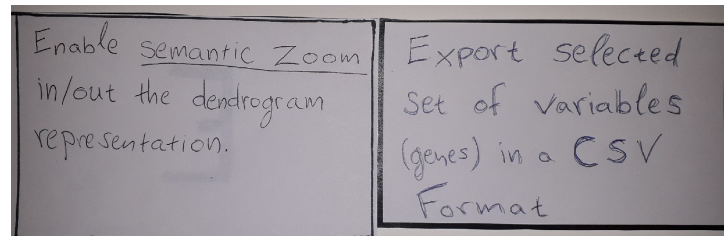 Enable semantic Zoom
in/out the dendrogram
representation.
Export selected
Set of variables
(genes) in a CSV
Format